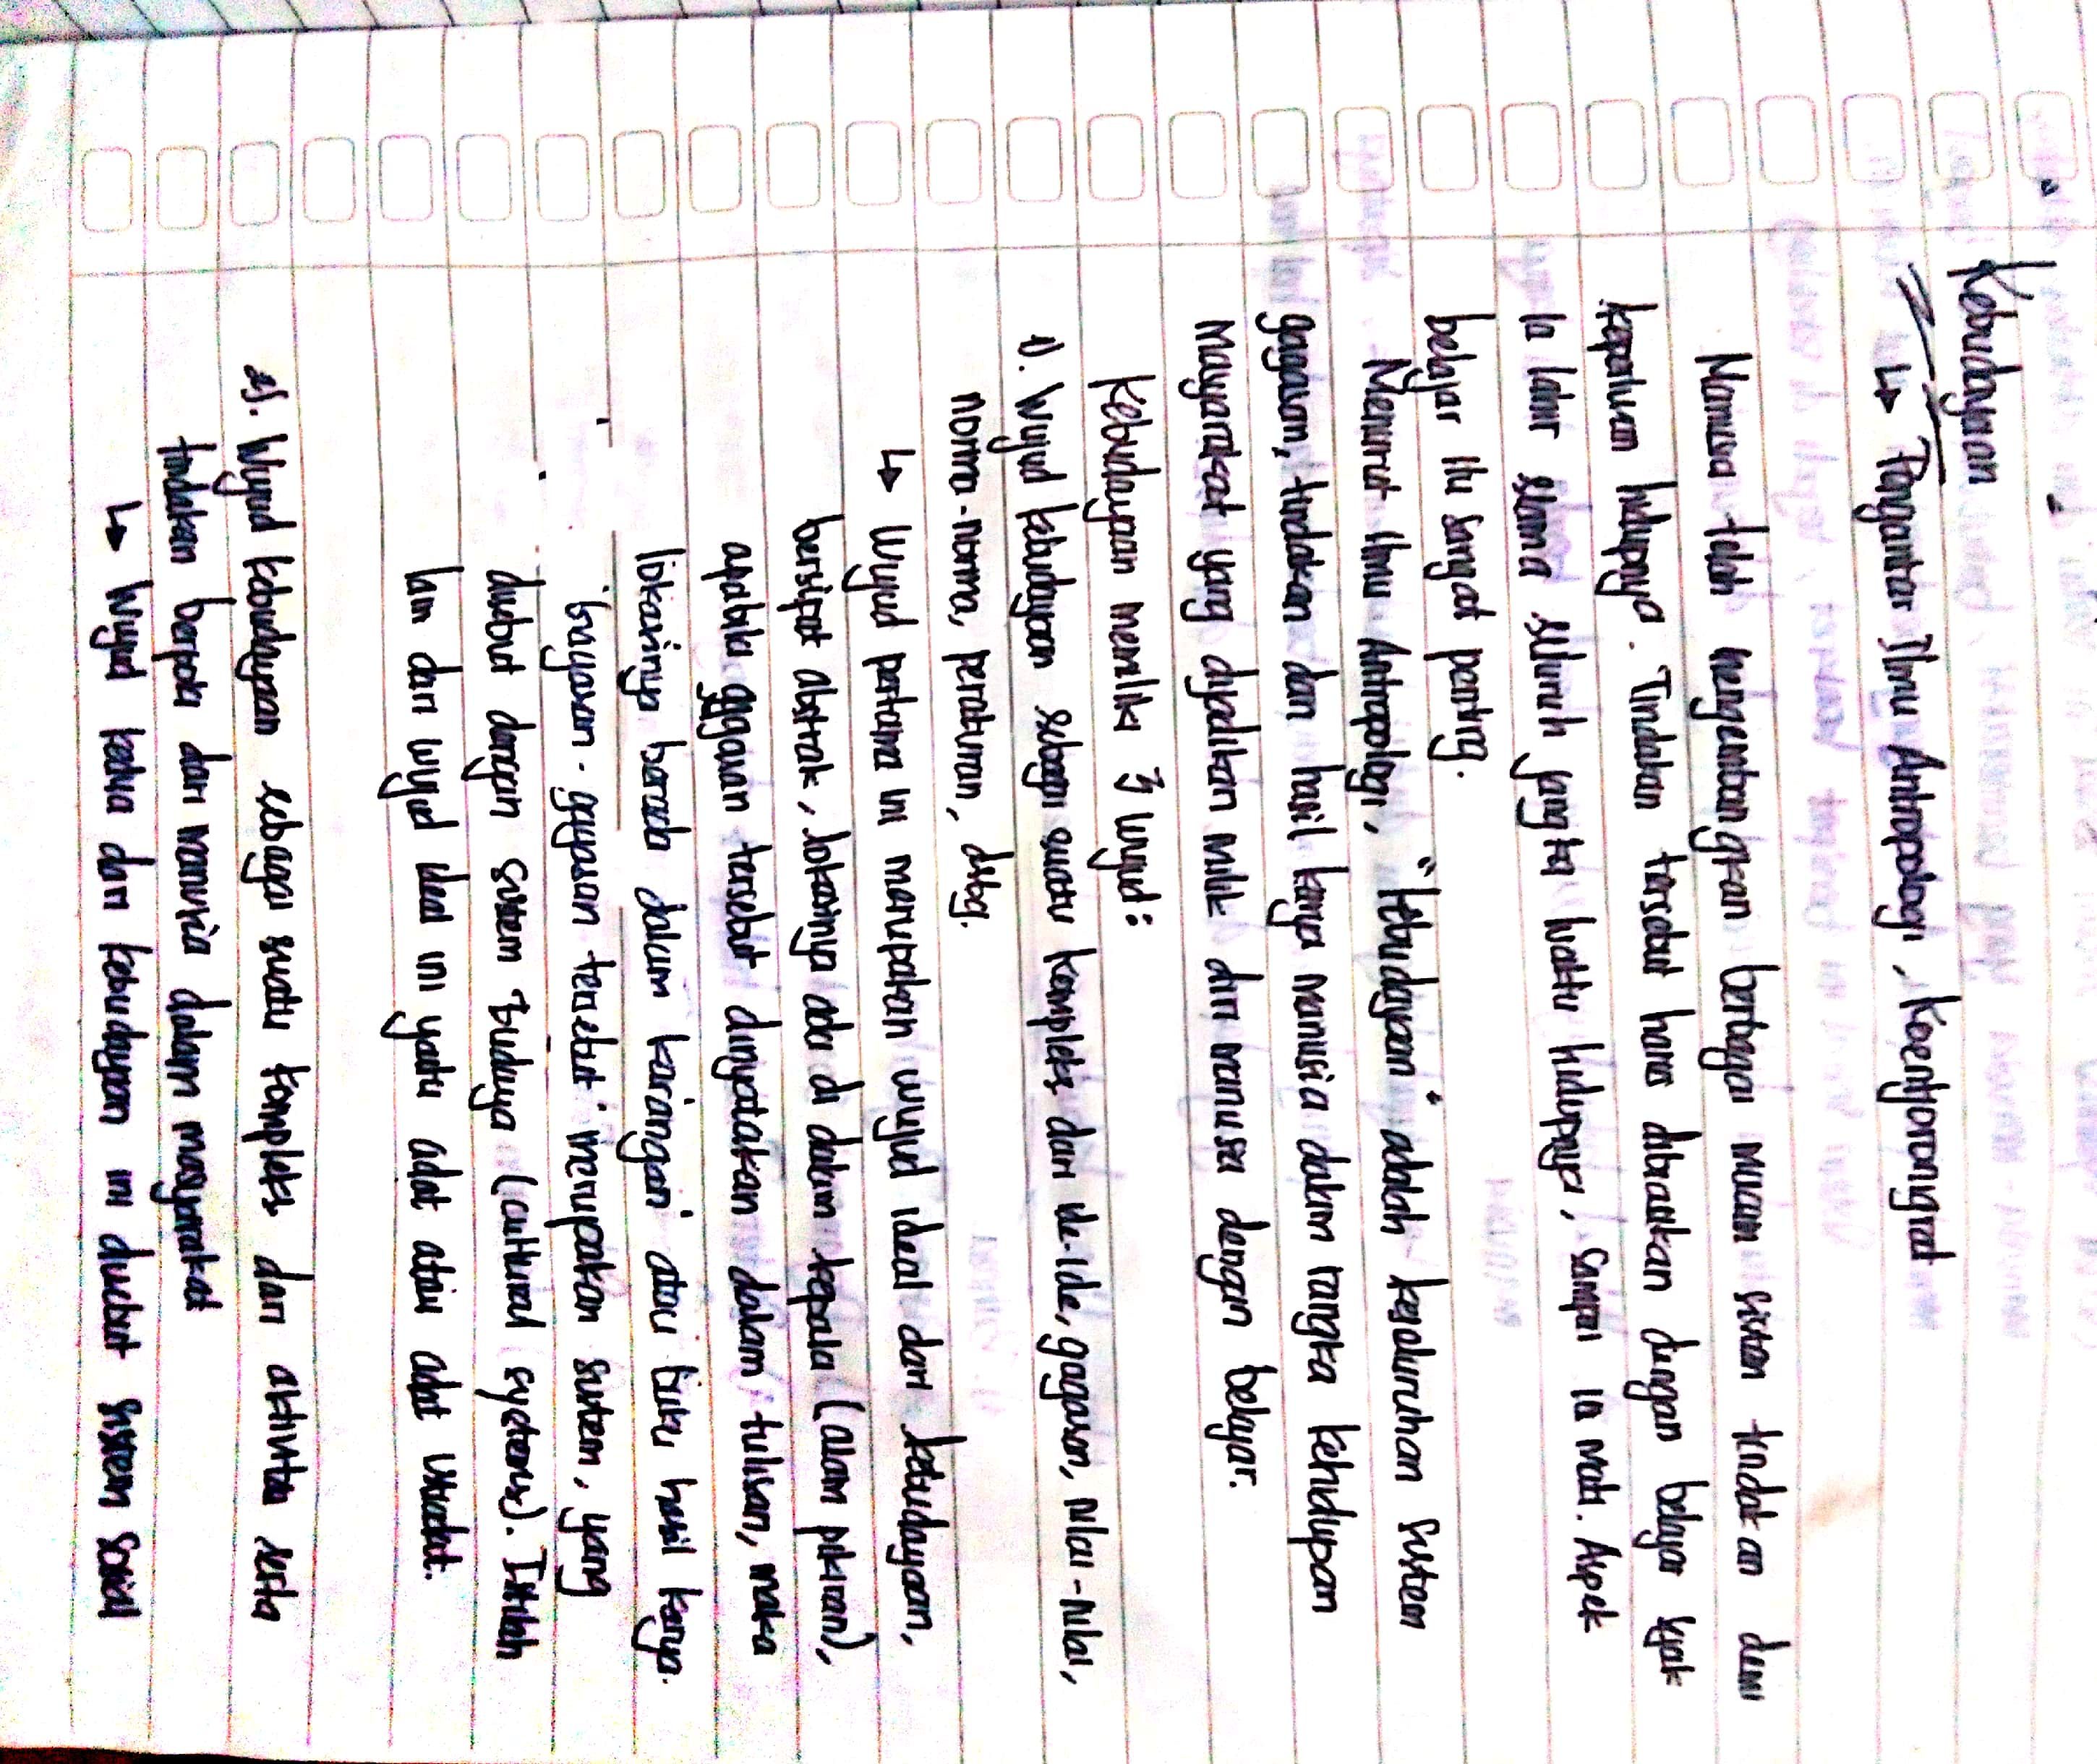 Kebudayaan
↳ Pengantar Ilmu Antropologi, Koentjorongrat
Manusia telah mengembangkan berbagai macam sistem tindakan demi
keperluan hidupnya. Tindakan tersebut harus dibiasakan dengan belajar sejak
ia lahir selama seluruh jangka waktu hidupnya, sampai ia mati. Aspek
belajar itu sangat penting.
Menurut Ilmu Antropologi, "kebudayaan" adalah keseluruhan sistem
gagasan, tindakan dan hasil karya manusia dalam rangka kehidupan
Masyarakat yang dijadikan milik diri manusia dengan belajar.
Kebudayaan memiliki 3 wujud:
1). Wujud kebudayaan sebagai suatu kompleks dari ide-ide, gagasan, nilai-nilai,
norma-norma, peraturan, dsbg.
↳ Wujud pertama ini merupakan wujud ideal dari kebudayaan,
bersifat abstrak, lokasinya ada di dalam kepala (alam pikiran),
apabila gagasan tersebut dinyatakan dalam tulisan, maka
lokasinya berada dalam karangan atau buku hasil karya.
gagasan-gagasan tersebut merupakan sistem, yang
disebut dengan sistem Budaya (cultural systems). Istilah
lain dari wujud ideal ini yaitu adat atau adat istiadat.
2). Wujud kebudayaan sebagai suatu kompleks dari aktivita serta
tindakan berpola dari manusia dalam masyarakat
↳ Wujud kedua dari kebudayaan ini disebut sistem sosial